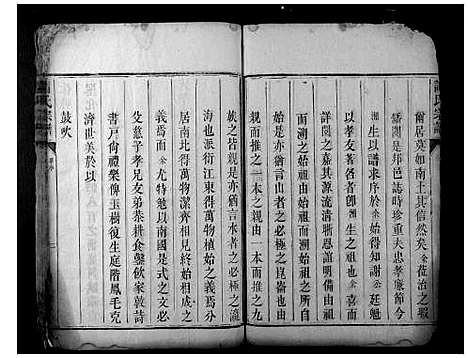 爾居莫如南土其信然矣余蒞治之暇
繙閱是邦邑誌時珍重夫忠孝廉節今
湘生以譜求序於余始得知謝公廷魁
以孝友著名者卽湘生之祖也余喜而
誦之嘉其源流清晰恩誼明備由祖
而溯之始祖由始祖而溯始祖之所自
始是亦猶言山者之必極之崑崙也
親而推之一本之親由一本而推之九
族之皆親是亦猶言水者之必極之
海也派衍江東得萬物植始之義焉分
居南北得萬物潔齊相見終始相成之
義焉而余尤特勉以南國是式之文必
父慈子孝兄友弟恭耕食鑿飲家敦詩
書戸尙禮樂俾玉樹復生庭階鳳毛克
濟世美於以
鼓吹